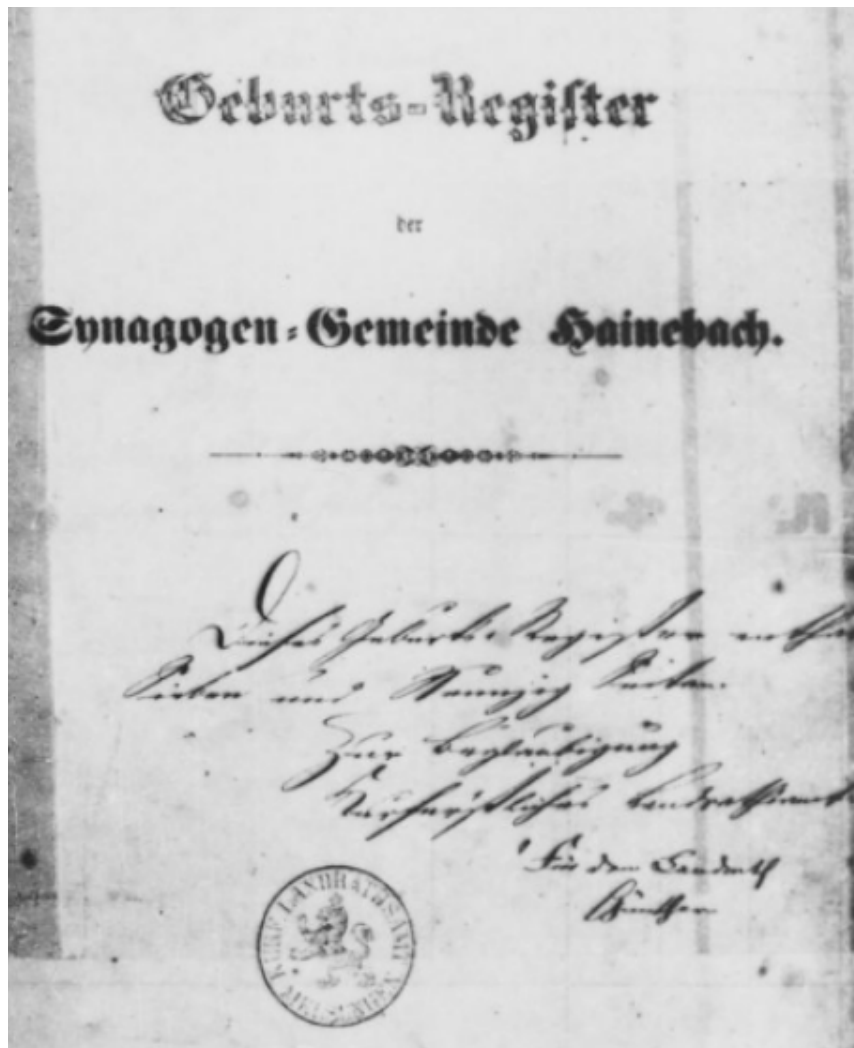 Geburts-Register
der
Synagogen-Gemeinde Hainebach.
Dieses Geburts-Register enthä
Sieben und Neunzig Seiten.
Zur Beglaubigung
Kurfürstliches Landrathsamt
Für den Landrath
KURF. LANDRATHSAMT MELSUNGEN